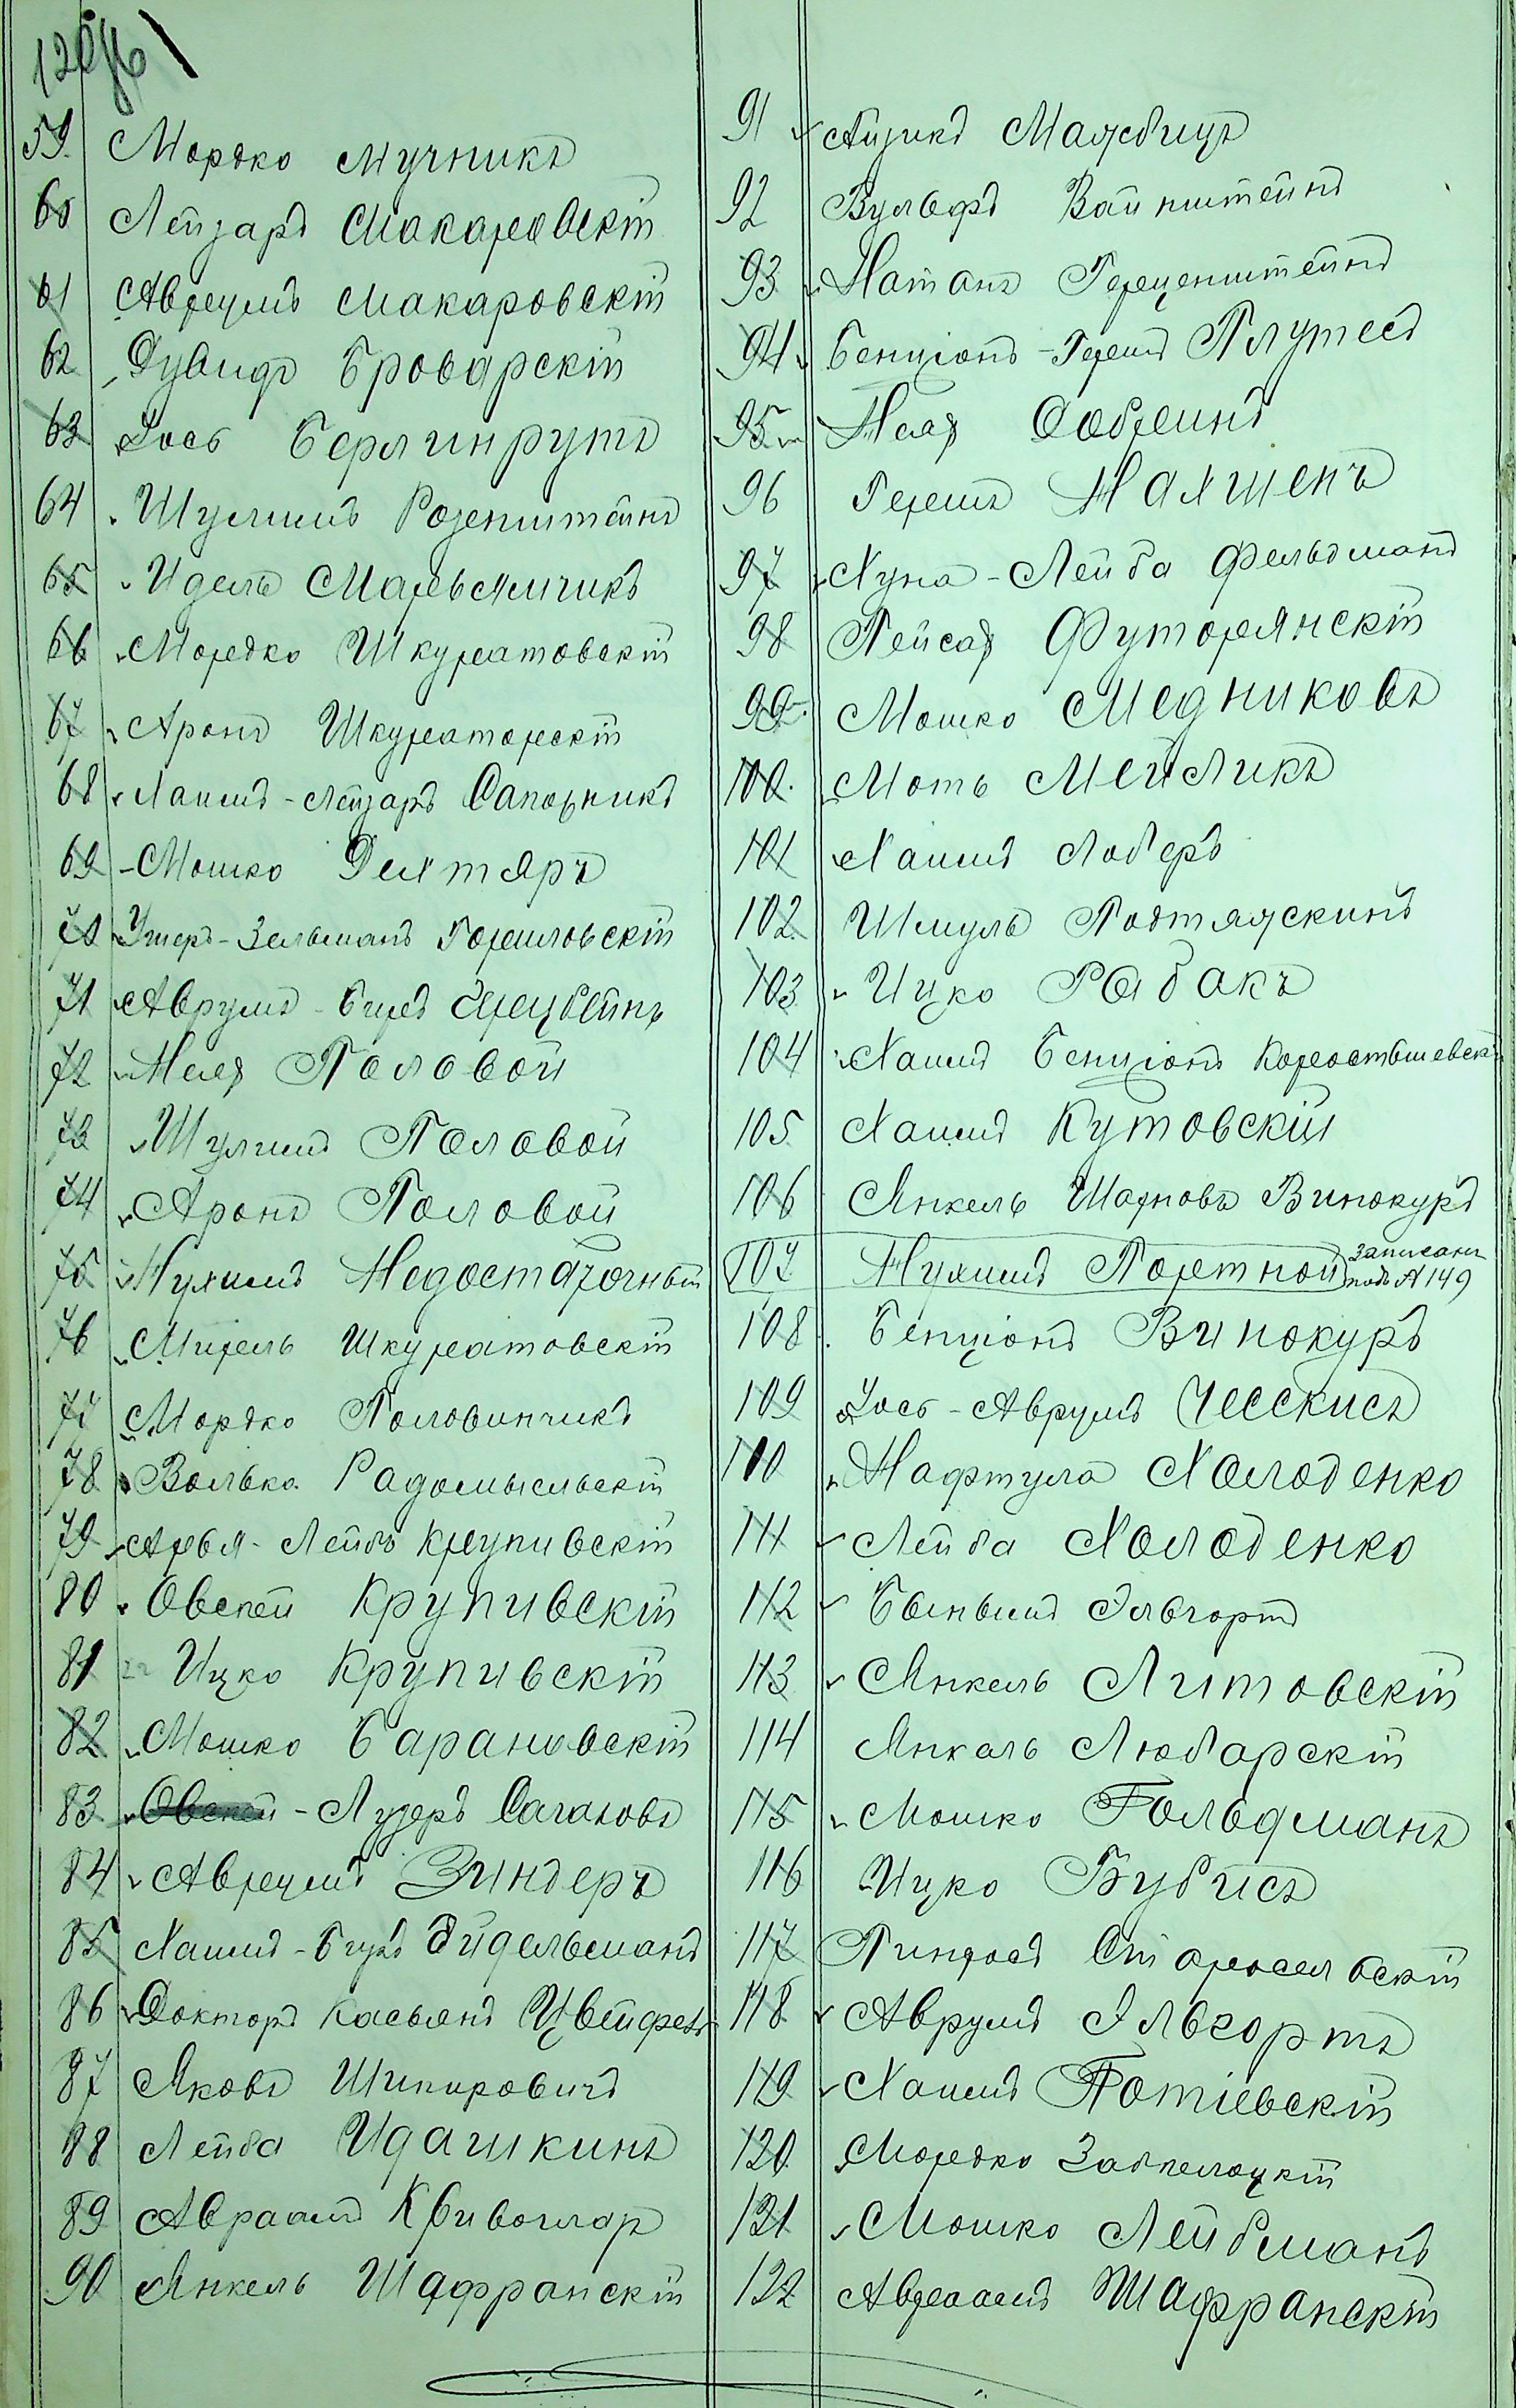 120об
59. Мордко Мучникъ
60 Лейзаръ Макаровскій
61 Аврумъ Макаровскій
62 Дувидъ Броварскій
63 Іось Берлинрутъ
64 Шулимъ Розенштейнъ
65 Идель Маръямчикъ
66 Мордко Шкуратовскій
67 Аронъ Шкураторскій
68 Хаимъ-Лейзаръ Сапожникъ
69 Мошко Дехтяръ
70 Ушеръ-Зельманъ Горшловскій
71 Аврумъ-Беръ
72 Неях Половой
73 Шулимъ Половой
74 Аронъ Половой
75 Нухимъ Недостаточный
76 Мирель Шкуратовскій
77 Мордко Половинчикъ
78 Волько Радомысльскій
79 Арья-Лейбъ Крупивскій
80 Овсей Крупивскій
81 Ицко Крупивскій
82 Мошко Барановскій
83 Овсей-Лузеръ Сагаловъ
84 Аврумъ Зиндеръ
85 Хаимъ-Беръ Эйдельманъ
86 Докторъ Касьянъ Цвейфель
87 Яковъ Шпировичъ
88 Лейба Идашкинъ
89 Авраамъ Кривошар
90 Янкель Шафранскій
91 Айзикъ Маябицъ
92 Вульфъ Вайнштейнъ
93 Натанъ Герценштейнъ
94 Бенціонъ-Гершъ Плутесъ
95 Неях Собринъ
96 Гершъ Нахшенъ
97 Хуна-Лейба Фельдманъ
98 Пейсах Футорянскій
99. Мошко Медниковъ
100. Моть Мейликъ
101 Хаимъ Лоберъ
102 Шмуль Подтяжскинъ
103 Ицко Рабакъ
104 Хаимъ Бенціонъ Коростышевск
105 Хаимъ Кутовскій
106 Янкель Шаэновъ Винокуръ
107 Нухимъ Портной записанъ
подъ № 149
108 Бенціонъ Винокуръ
109 Іось-Аврумъ Чесскисъ
110 Нафтула Холоденко
111 Лейба Холоденко
112 Беньымъ Эльгортъ
113 Янкель Литовскій
114 Янкель Любарскій
115 Мошко Гольдманъ
116 Ицко Бубисъ
117 Пинхосъ Старосельскій
118 Аврумъ Эльгортъ
119 Хаимъ Потіевскій
120 Мордко Забелоцкій
121 Мошко Лейбманъ
122 Авраамъ Шафранскій